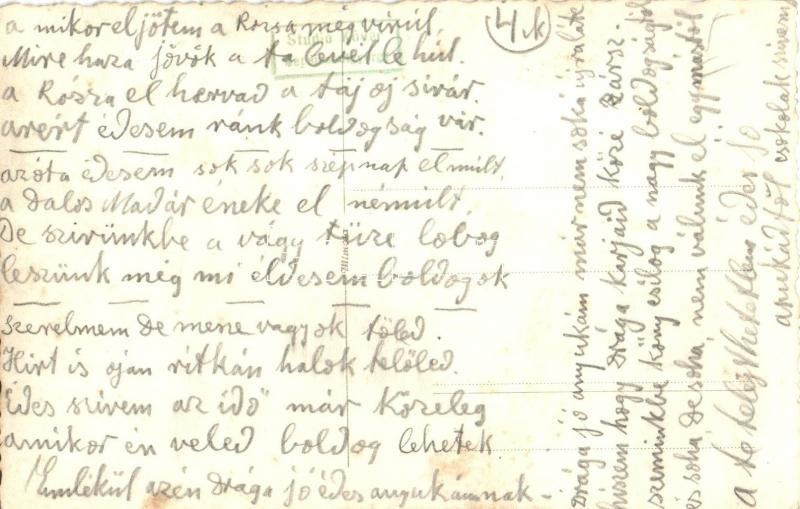 a mikor eljötem a Rózsa még virúl,
Mire haza jövök a fa levél le húl.
a Rósza el hervad a táj oj sivár.
azért édesem ránk boldogság vár.
azóta édesem sok sok szép nap elmúlt,
a dalos Madár éneke el némúlt,
De szivünkbe a vágy tüze lobog
leszünk még mi éldesem boldogok
szerelmem de mene vagyok töled.
Hirt is oján ritkán halok felöled.
Édes szivem az idö már közeleg
amikor én veled boldog lehetek.
Emlékül azén drága jó édes anyukámnak -
4k
Studio
drága jó anyukám már nem soká ujra látlak
hiszem hogy drága karjaid közé zársz.
szemünkbe köny csilog a nagy boldogságtól
és soha de soha, nem válunk el egymástól
a te felejthetetlen édes jó
apukádtól csokolak szivem
Mimosa